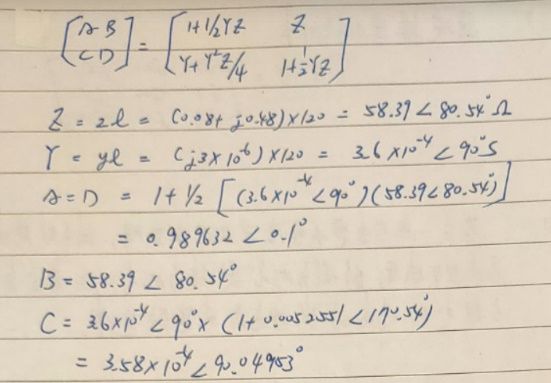 [A B
C D] = [1+1/2YZ Z
Y+Y²Z/4 1+1/2YZ]
Z = zl = (0.08+j0.48)×120 = 58.39∠80.54°Ω
Y = yl = (j3×10⁻⁶)×120 = 3.6×10⁻⁴∠90°S
A=D = 1+1/2[(3.6×10⁻⁴∠90°)(58.39∠80.54°)]
= 0.989632∠0.1°
B = 58.39∠80.54°
C = 3.6×10⁻⁴∠90°×(1+0.005255∠170.54°)
= 3.58×10⁻⁴∠90.04953°